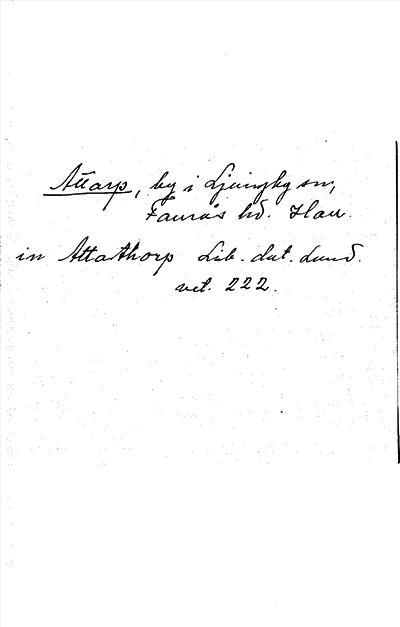 Attarp, by i Ljungby sn,
Faurås hd. Hall.
in Attathorp Lib. dat. Lund.
vet. 222.